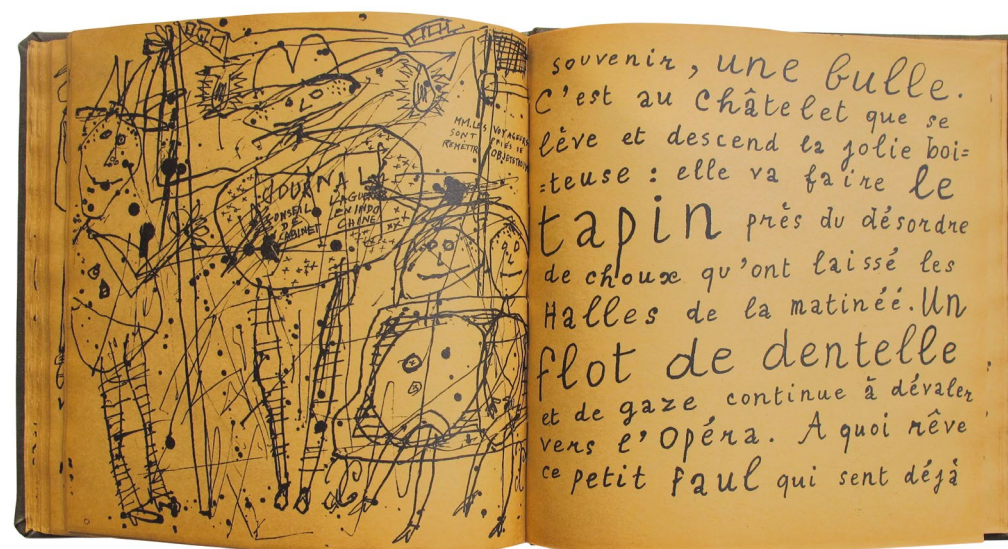 MM. LES VOYAGEURS
SONT PRIÉS DE
REMETTR
JOURNAL
CONSEIL
DE
CABINET
LAGUER
EN INDO
CHINE
souvenir, une bulle.
C'est au Châtelet que se
lève et descend la jolie boi=
=teuse : elle va faire le
tapin près du désordre
de choux qu'ont laissé les
Halles de la matinéé. Un
flot de dentelle
et de gaze continue à dévaler
vers l'Opéra. A quoi rêve
ce petit faul qui sent déjà